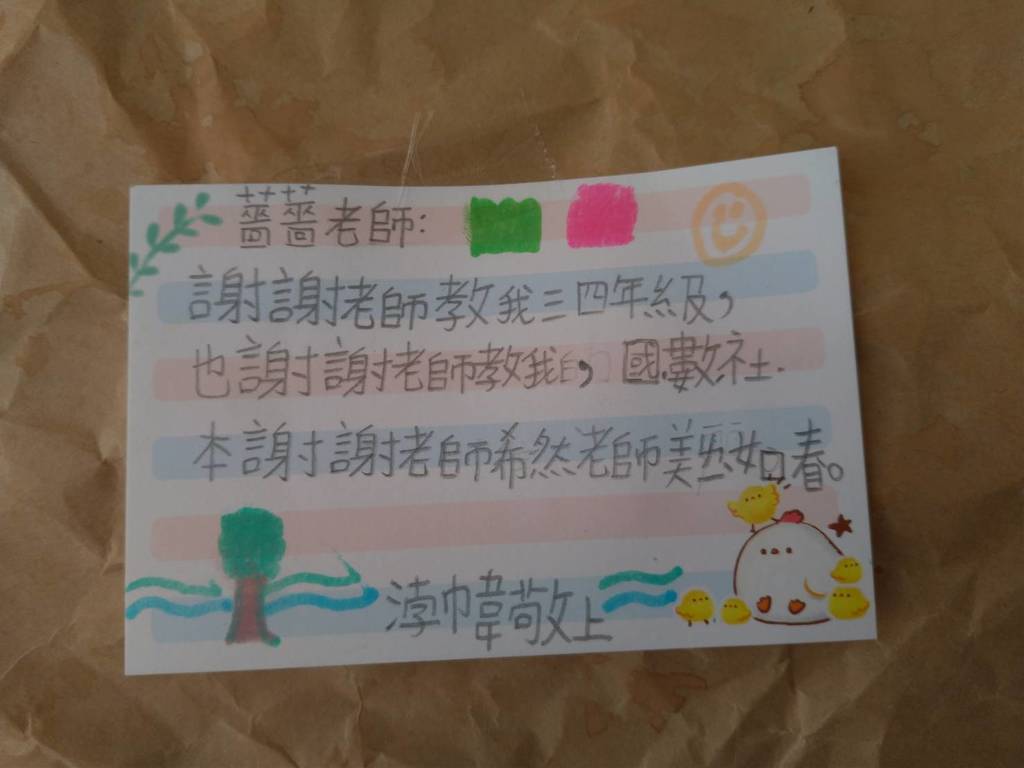 薔薔老師:
謝謝老師教我三四年級,
也謝謝老師教我,國數社.
本謝謝老師希然老師美如春。
幃敬上